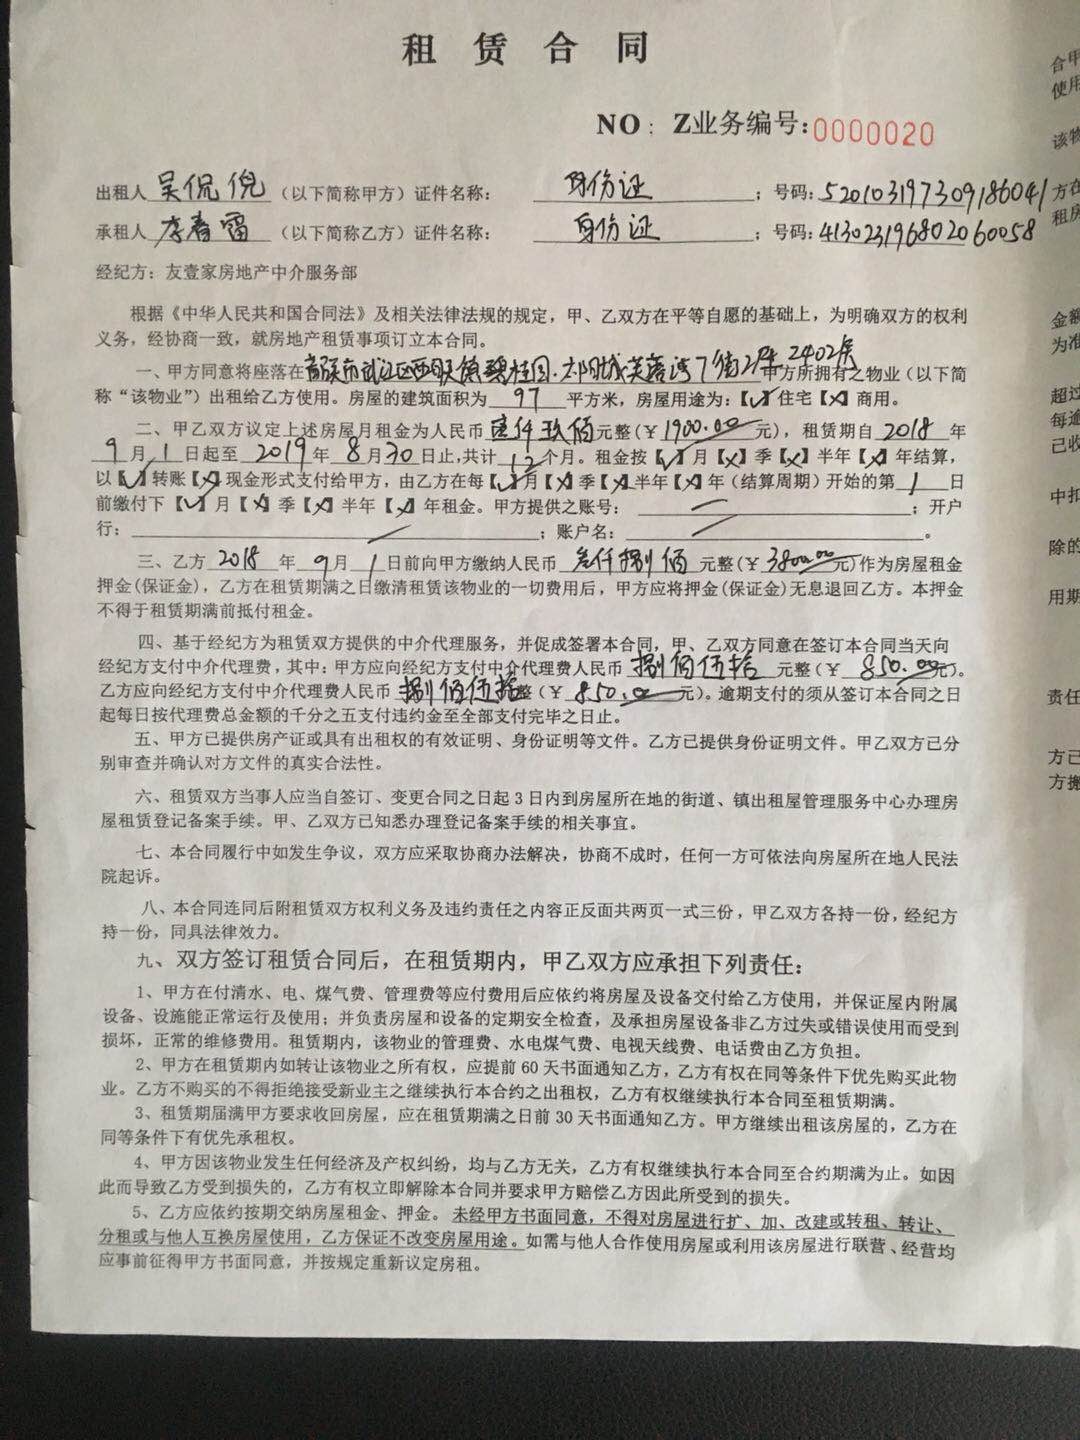 租赁合同
NO： Z业务编号：0000020
出租人 吴侃倪（以下简称甲方）证件名称： 身份证 ；号码：520103197309186041
承租人 李春雷（以下简称乙方）证件名称： 身份证 ；号码：413023196802060058
经纪方：友壹家房地产中介服务部
根据《中华人民共和国合同法》及相关法律法规的规定，甲、乙双方在平等自愿的基础上，为明确双方的权利
义务，经协商一致，就房地产租赁事项订立本合同。
一、甲方同意将座落在韶关市武江区西联镇碧桂园·太阳城芙蓉湾7街2座2402房 甲方所拥有之物业（以下简
称“该物业”）出租给乙方使用。房屋的建筑面积为 97 平方米，房屋用途为：【✓】住宅【×】商用。
二、甲乙双方议定上述房屋月租金为人民币 壹仟玖佰元整（￥1900.00元），租赁期自 2018 年
9月1日起至 2019年8月30日止，共计12个月。租金按【✓】月【×】季【×】半年【×】年结算，
以【✓】转账【×】现金形式支付给甲方，由乙方在每【✓】月【×】季【×】半年【×】年（结算周期）开始的第 1 日
前缴付下【✓】月【×】季【×】半年【×】年租金。甲方提供之账号： ；开户
行： ；账户名： 。
三、乙方 2018 年 9月 1日前向甲方缴纳人民币 叁仟捌佰 元整（￥3800.00元）作为房屋租金
押金(保证金)，乙方在租赁期满之日缴清租赁该物业的一切费用后，甲方应将押金(保证金)无息退回乙方。本押金
不得于租赁期满前抵付租金。
四、基于经纪方为租赁双方提供的中介代理服务，并促成签署本合同，甲、乙双方同意在签订本合同当天向
经纪方支付中介代理费，其中：甲方应向经纪方支付中介代理费人民币 捌佰伍拾 元整（￥ 850.00元）。
乙方应向经纪方支付中介代理费人民币 捌佰伍拾整（￥ 850.00元）。逾期支付的须从签订本合同之日
起每日按代理费总金额的千分之五支付违约金至全部支付完毕之日止。
五、甲方已提供房产证或具有出租权的有效证明、身份证明等文件。乙方已提供身份证明文件。甲乙双方已分
别审查并确认对方文件的真实合法性。
六、租赁双方当事人应当自签订、变更合同之日起 3 日内到房屋所在地的街道、镇出租屋管理服务中心办理房
屋租赁登记备案手续。甲、乙双方已知悉办理登记备案手续的相关事宜。
七、本合同履行中如发生争议，双方应采取协商办法解决，协商不成时，任何一方可依法向房屋所在地人民法
院起诉。
八、本合同连同后附租赁双方权利义务及违约责任之内容正反面共两页一式三份，甲乙双方各持一份，经纪方
持一份，同具法律效力。
九、双方签订租赁合同后，在租赁期内，甲乙双方应承担下列责任：
1、甲方在付清水、电、煤气费、管理费等应付费用后应依约将房屋及设备交付给乙方使用，并保证屋内附属
设备、设施能正常运行及使用；并负责房屋和设备的定期安全检查，及承担房屋设备非乙方过失或错误使用而受到
损坏，正常的维修费用。租赁期内，该物业的管理费、水电煤气费、电视天线费、电话费由乙方负担。
2、甲方在租赁期内如转让该物业之所有权，应提前 60 天书面通知乙方，乙方有权在同等条件下优先购买此物
业。乙方不购买的不得拒绝接受新业主之继续执行本合约之出租权，乙方有权继续执行本合同至租赁期满。
3、租赁期届满甲方要求收回房屋，应在租赁期满之日前 30 天书面通知乙方。甲方继续出租该房屋的，乙方在
同等条件下有优先承租权。
4、甲方因该物业发生任何经济及产权纠纷，均与乙方无关，乙方有权继续执行本合同至合约期满为止。如因
此而导致乙方受到损失的，乙方有权立即解除本合同并要求甲方赔偿乙方因此所受到的损失。
5、乙方应依约按期交纳房屋租金、押金。未经甲方书面同意，不得对房屋进行扩、加、改建或转租、转让、
分租或与他人互换房屋使用，乙方保证不改变房屋用途。如需与他人合作使用房屋或利用该房屋进行联营、经营均
应事前征得甲方书面同意，并按规定重新议定房租。
合甲
使用
该物
方在
租房
金额
为准
超过
每逾
已收
中扣
除的
用期
责任
方已
方搬